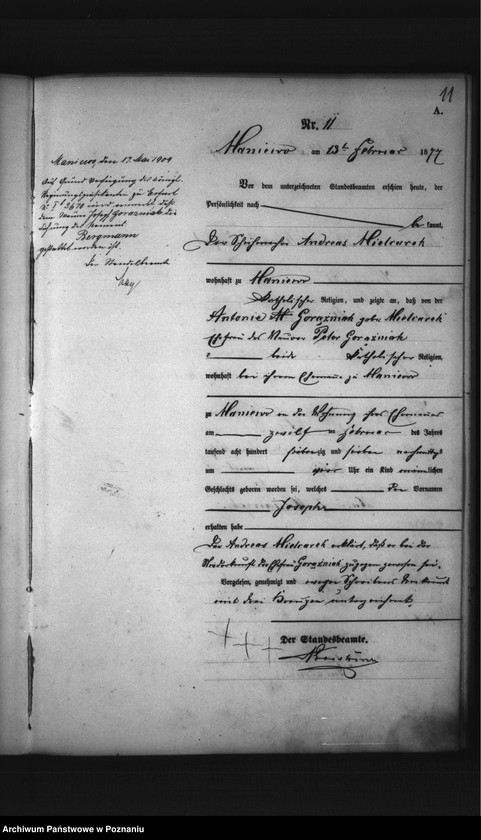 11
A.
Nr. 11
Maniewo am 13ten Februar 1877
Vor dem unterzeichneten Standesbeamten erschien heute, der
Persönlichkeit nach
be kannt,
Der Schuhmacher Andreas Mielcarek
wohnhaft zu Maniewo
katholischer Religion, und zeigte an, daß von der
Antonie Goraźniak geborne Mielcarek
Ehefrau des Maurer Peter Goraźniak
beide katholischer Religion,
wohnhaft bei ihrem Ehemanne zu Maniewo
zu Maniewo in der Wohnung ihres Ehemannes
am zwölften Februar des Jahres
tausend acht hundert siebenzig und sieben nachmittags
um vier Uhr ein Kind männlichen
Geschlechts geboren worden sei, welches den Vornamen
Joseph
erhalten habe
Der Andreas Mielcarek erklärt, daß er bei der
Niederkunft der Ehefrau Goraźniak zugegen gewesen sei.
Vorgelesen, genehmigt und wegen Schreibens Unkunde
mit drei Kreuzen unterzeichnet.
+ + +
Der Standesbeamte.
Maniewo, den 17. Mai 1909
Auf Grund Verfügung des Königl.
Regierungspräsidenten zu
wird vermerkt, daß
dem Maurer Joseph Goraźniak die
Führung des Namens
Bergmann
gestattet worden ist.
Der Standesbeamte
Archiwum Państwowe w Poznaniu